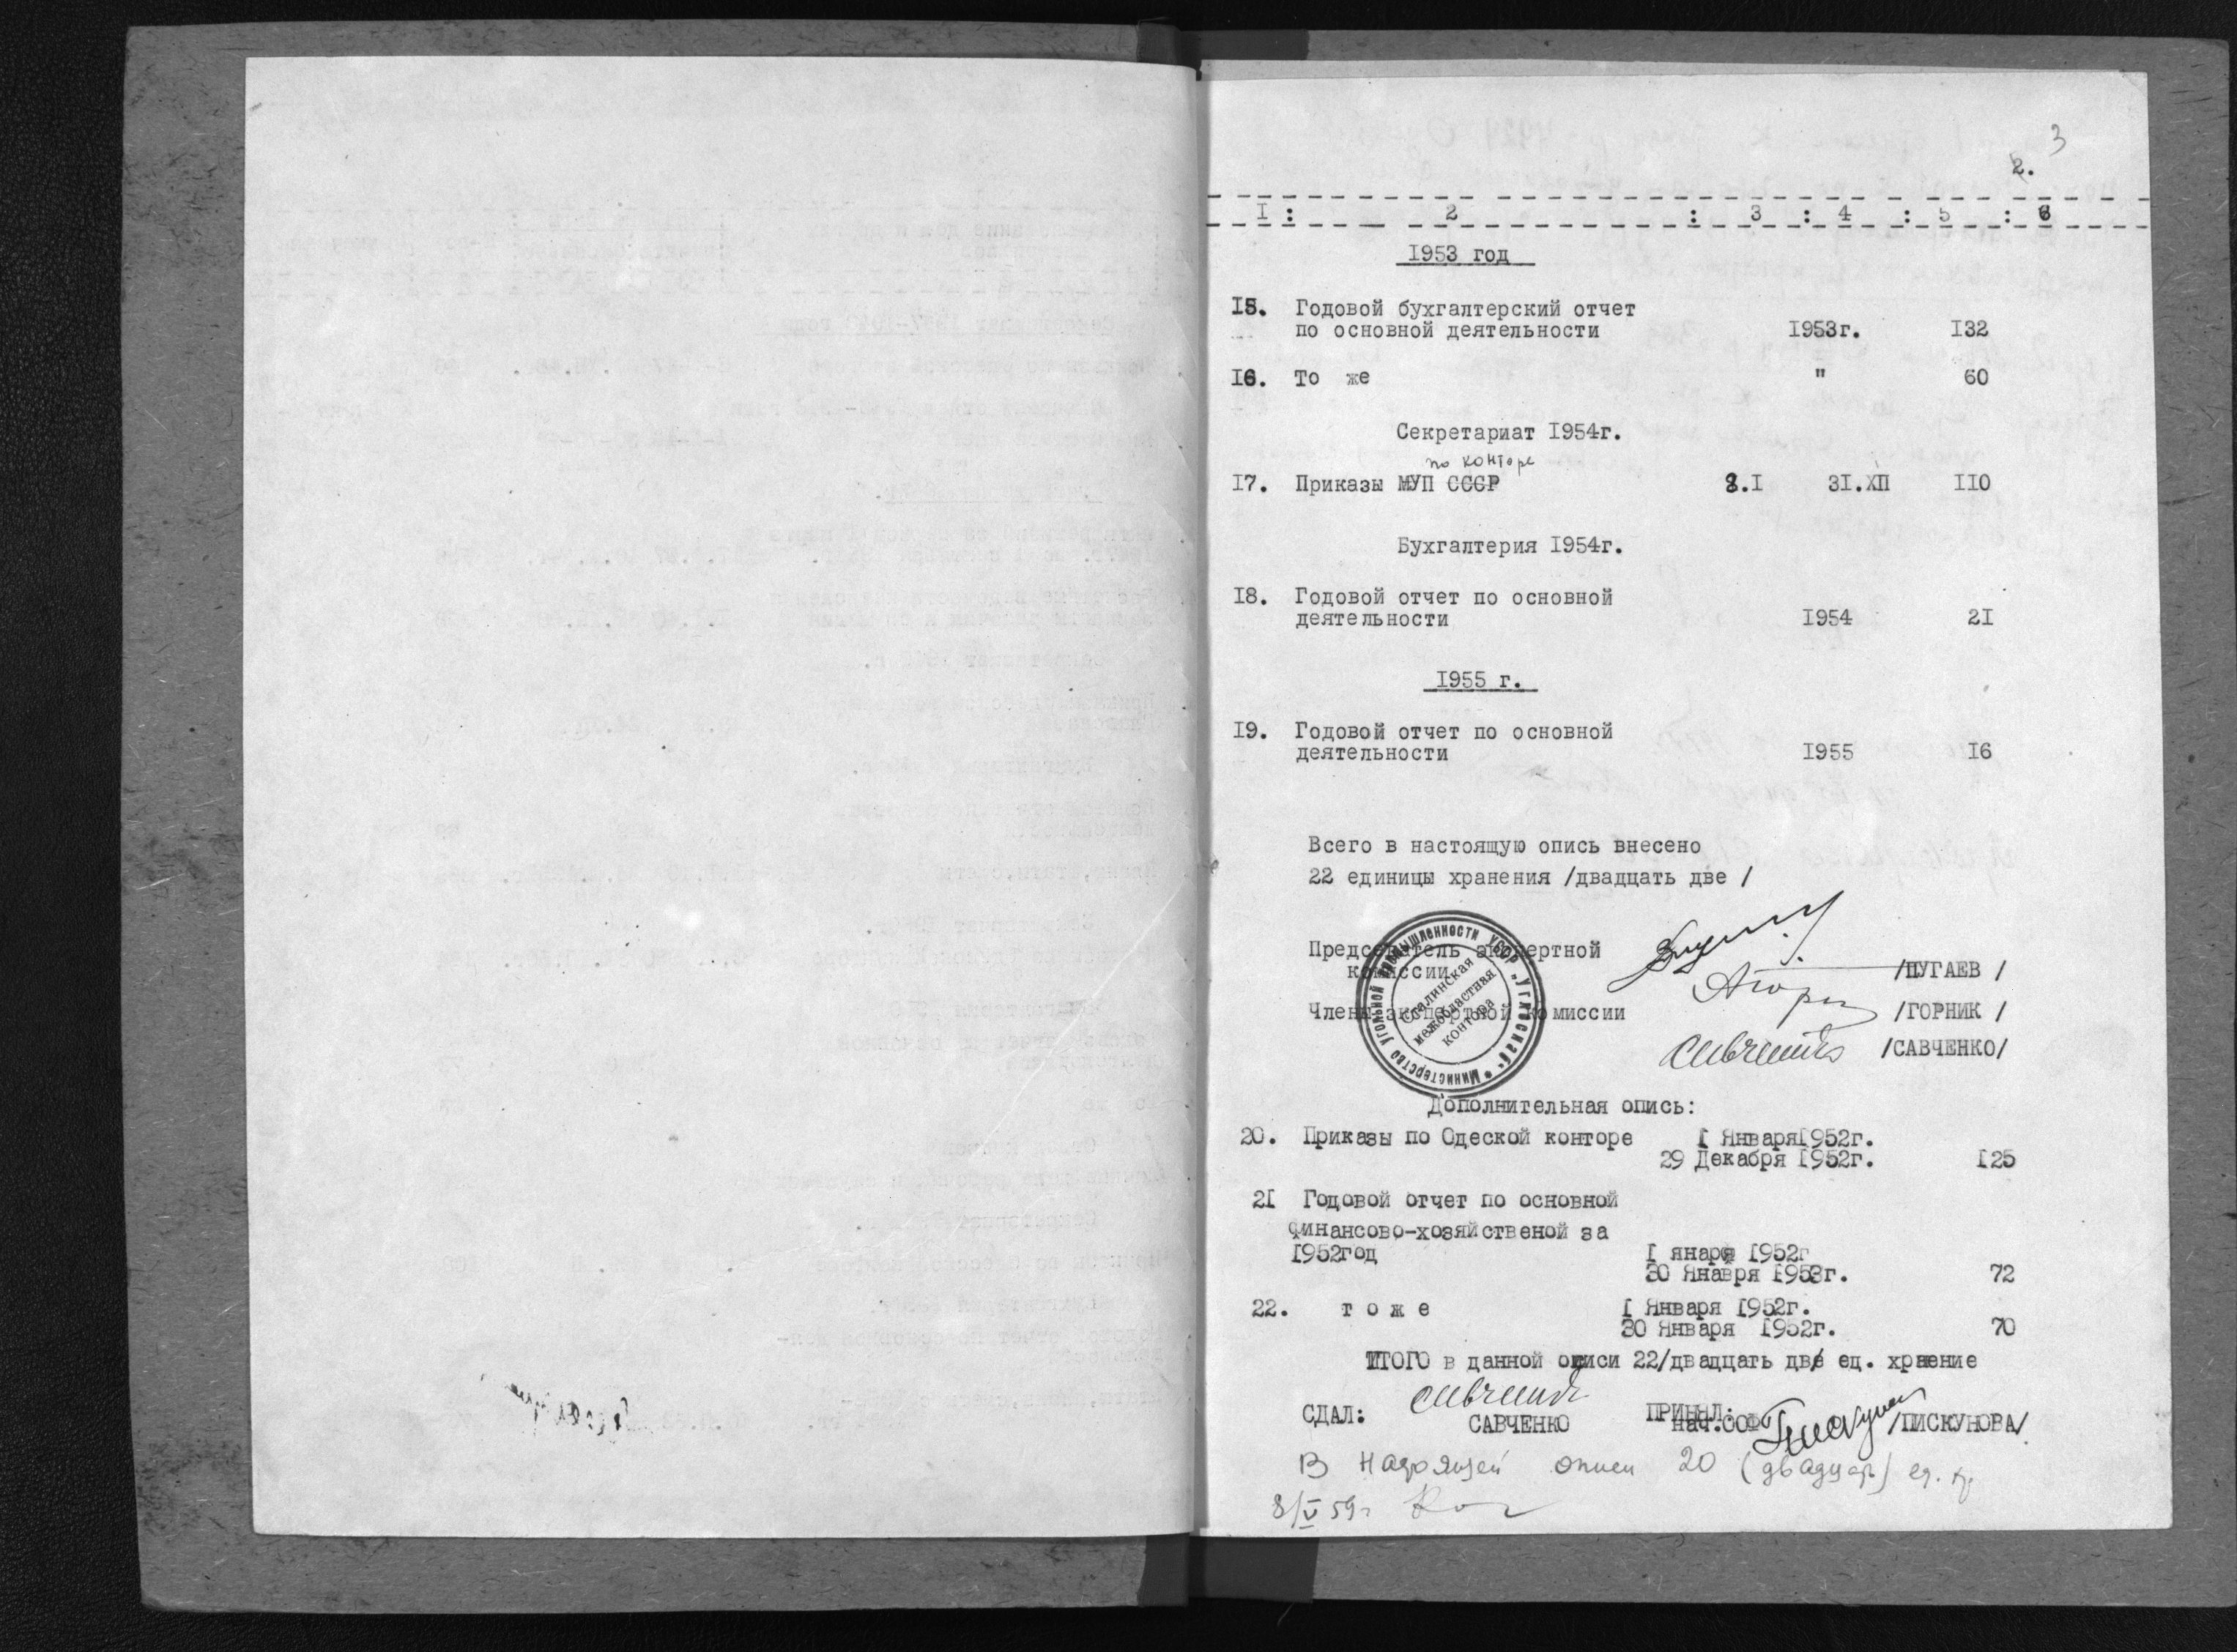 3
2.
I : 2 : 3 : 4 : 5 : 6
1953 год
I5. Годовой бухгалтерский отчет
по основной деятельности I953г. I32
I6. То же " 60
Секретариат I954г.
по конторе
I7. Приказы МУП СССР 2.I 3I.ХП IIO
Бухгалтерия I954г.
I8. Годовой отчет по основной
деятельности I954 2I
I955 г.
I9. Годовой отчет по основной
деятельности I955 I6
Всего в настоящую опись внесено
22 единицы хранения /двадцать две /
Председатель экспертной
комиссии /ПУГАЕВ /
Члены экспертной комиссии /ГОРНИК /
Савченко /САВЧЕНКО/
Министерство угольной промышленности УССР „Углеснаб"
Сталинская
межобластная
контора
Дополнительная опись:
20. Приказы по Одеской конторе I ЯнваряI952г.
29 Декабря I952г. I25
2I Годовой отчет по основной
финансово-хозяйственой за
I952год I янаря I952г
30 Января I953г. 72
22. т о ж е I Января I952г.
30 Января I952г. 70
ИТОГО в данной описи 22/двадцать две ед. храение
СДАЛ: Савченко ПРИНЯЛ:
САВЧЕНКО нач.ООФ /ПИСКУНОВА/
В настоящей описи 20 (двадцать) ед. хр.
8/V 59г